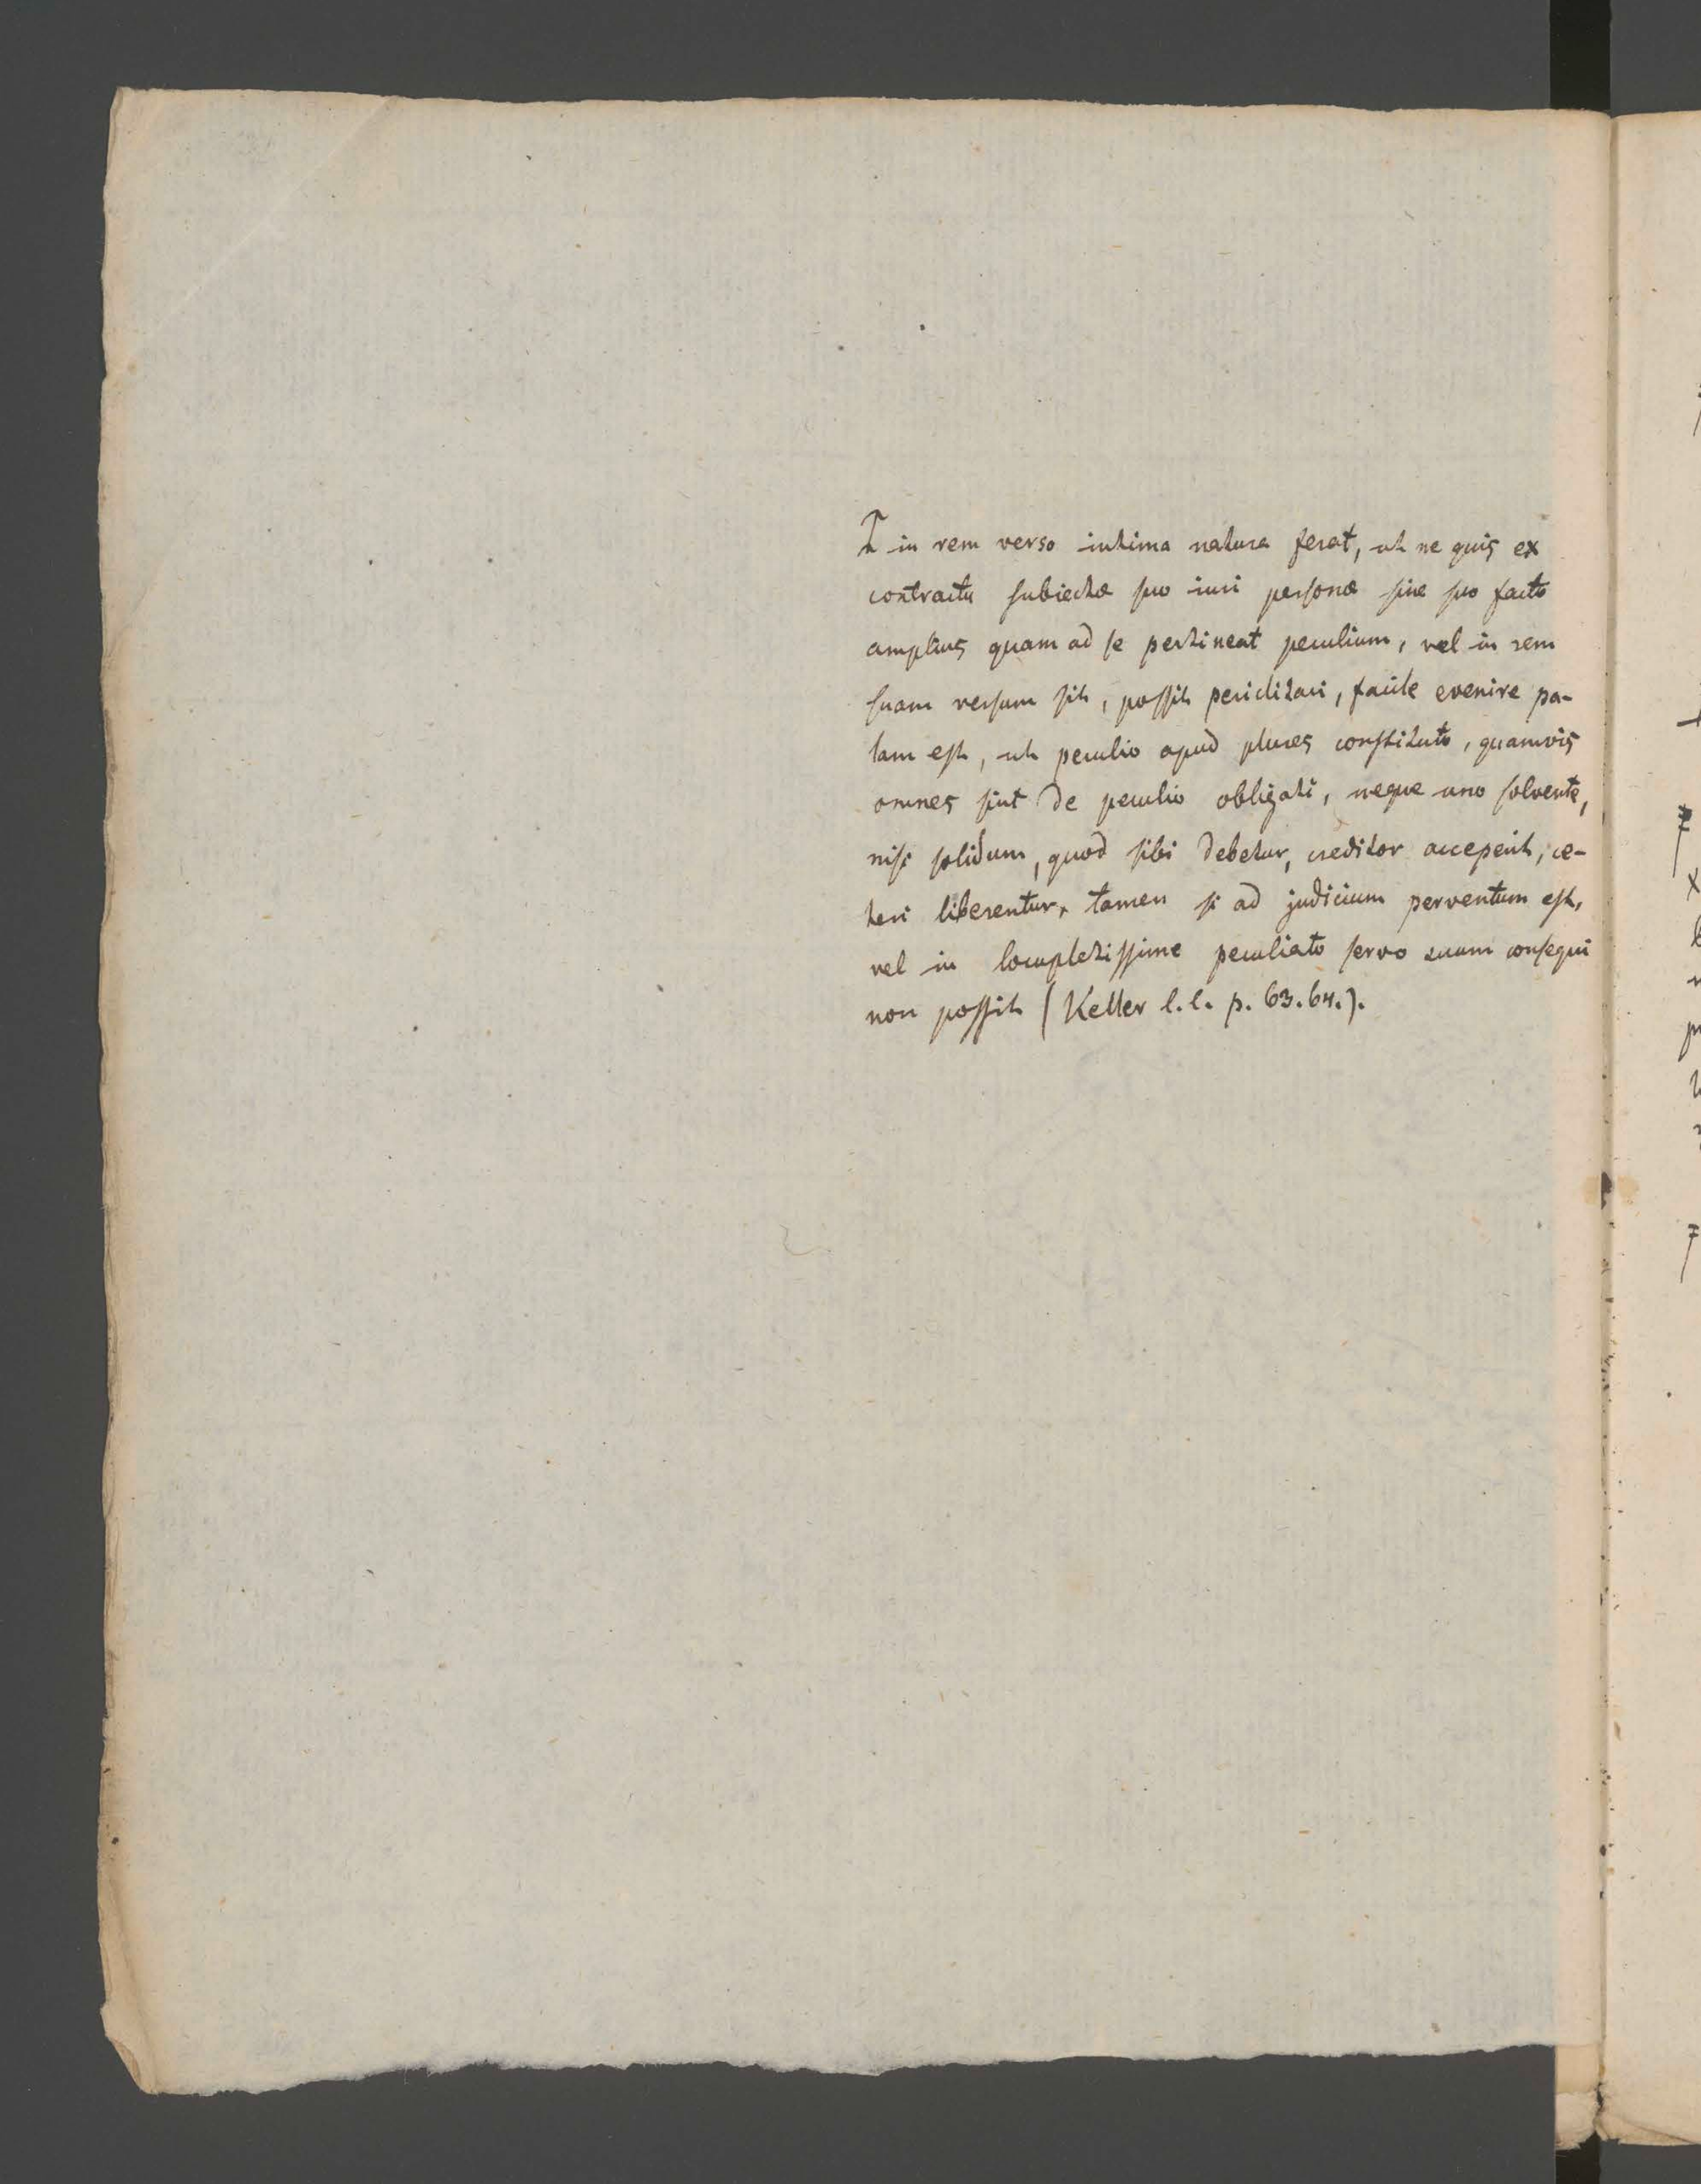 in rem verso intima natura ferat, ut ne quis ex
contractu subiectae suo iuri personae sine suo facto
amplius quam ad se pertineat peculium, vel in rem
suam versum sit, possit periclitari, facile evenire pa-
lam est, ut peculio apud plures constituto, quamvis
omnes sint de peculio obligati, neque uno solvente,
nisi solidum, quod sibi debetur, creditor acceperit, ce-
teri liberentur, tamen si ad judicium perventum est,
vel in locupletissime peculiato servo suum consequi
non possit (Keller l. l. p. 63. 64.).